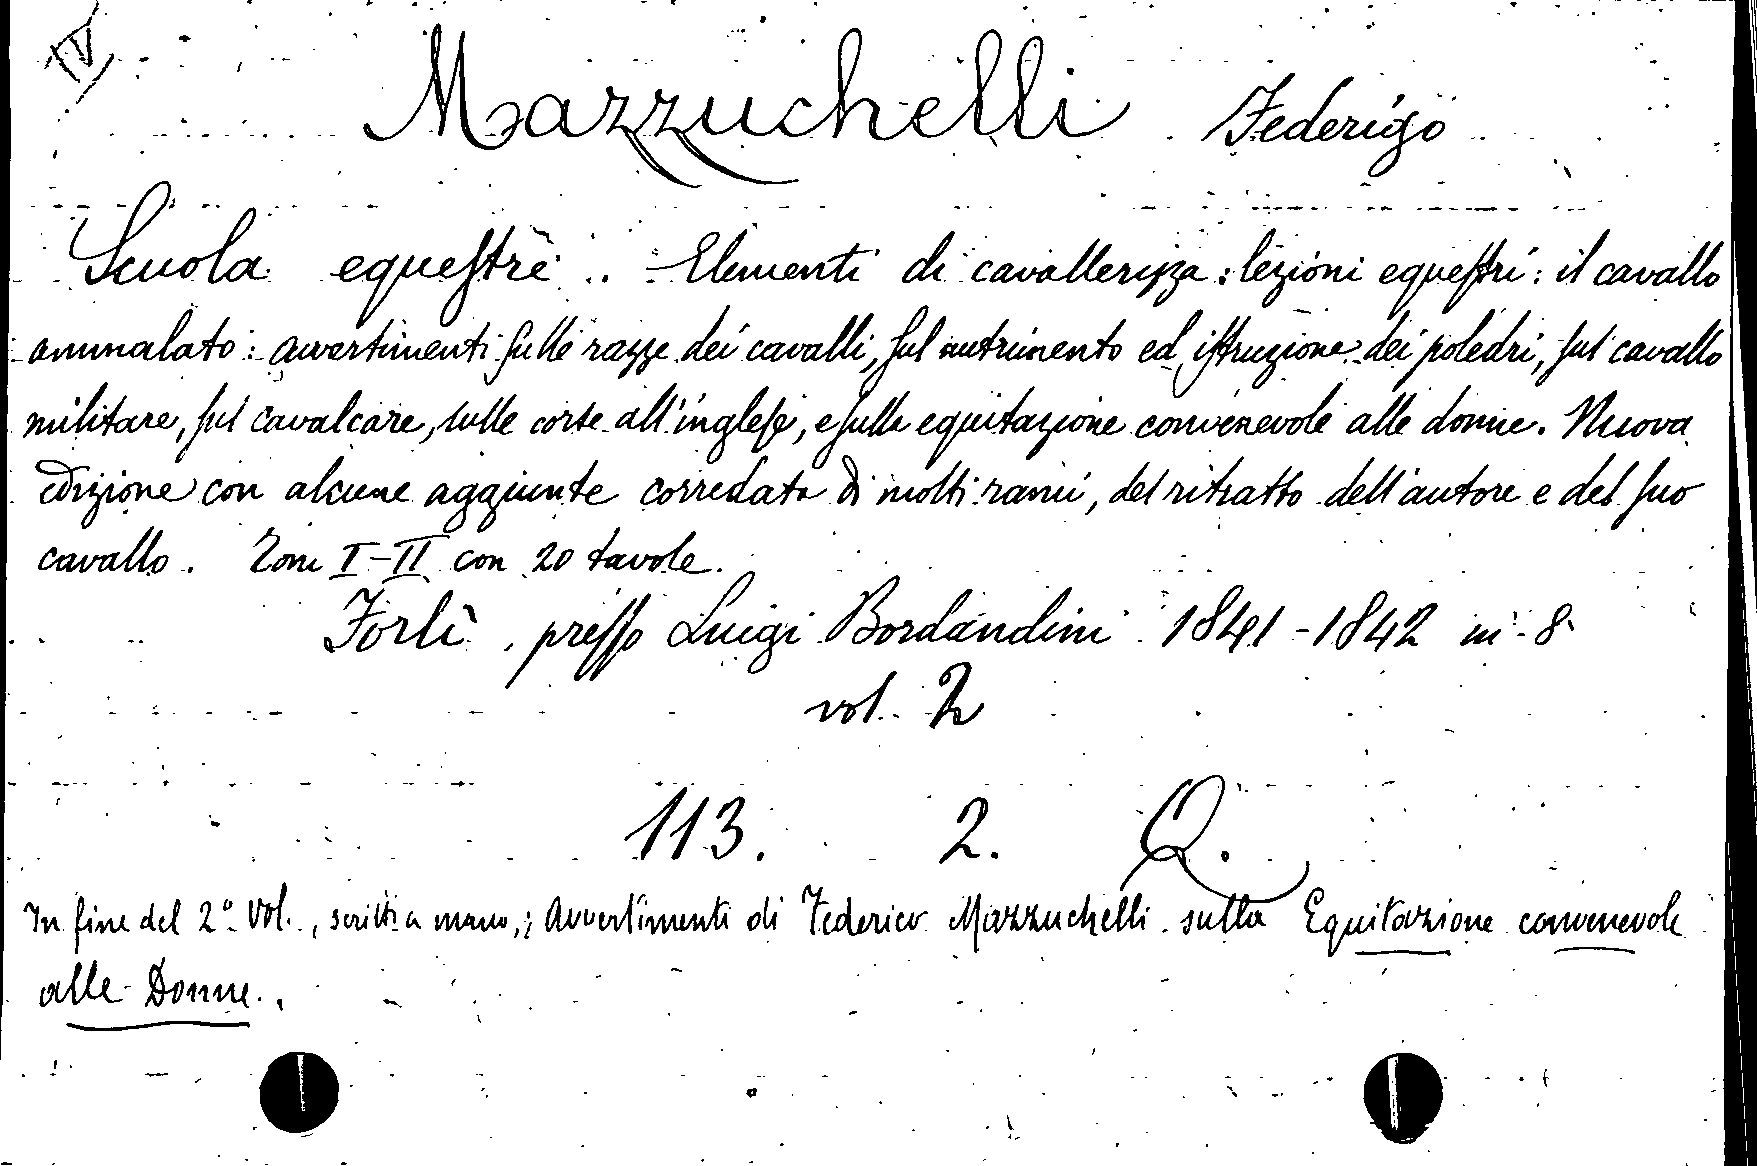 IV
Mazzuchelli Federigo
Scuola equestre .. - Elementi di cavallerizza: lezioni equestri: il cavallo
ammalato: avvertimenti sulle razze dei cavalli, sul nutrimento ed istruzione dei poledri, sul cavallo
militare, sul cavalcare, sulle corse all'inglese, e sulla equitazione convenevole alle donne. Nuova
edizione con alcune aggiunte corredata di molti rami, del ritratto dell'autore e del suo
cavallo. Tom I-II con 20 tavole.
Forlì, presso Luigi Bordandini 1841-1842 in-8
vol. 2
113. 2. Q.
In fine del 2º Vol., scritti a mano,; Avvertimenti di Federico Mazzuchelli sulla Equitazione convenevole
alle Donne.